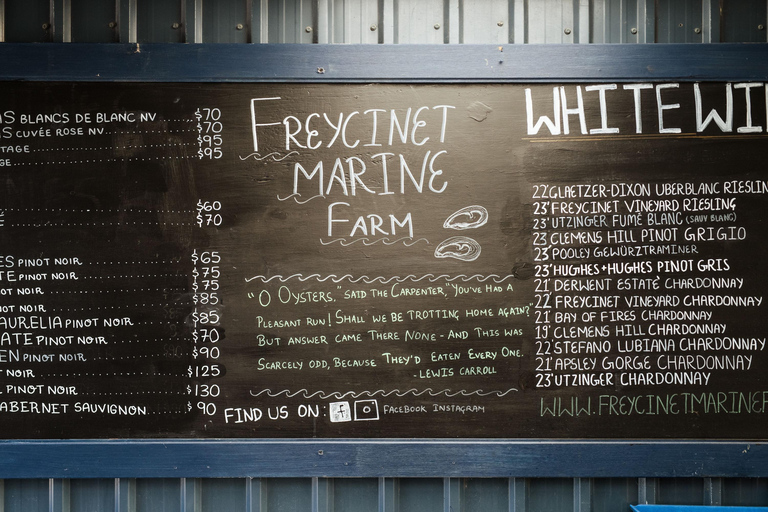 AS BLANCS DE BLANC NV $70
AS CUVÉE ROSE NV $70
TAGE $95
GE $95
$60
E $70
ES PINOT NOIR $65
TE PINOT NOIR $75
OT NOIR $75
NOT NOIR $85
AURELIA PINOT NOIR $85
ATE PINOT NOIR $70
EN PINOT NOIR $90
T NOIR $125
L PINOT NOIR $130
ABERNET SAUVIGNON $90
FREYCINET
MARINE
FARM
"O OYSTERS," SAID THE CARPENTER, "YOU'VE HAD A
PLEASANT RUN! SHALL WE BE TROTTING HOME AGAIN?"
BUT ANSWER CAME THERE NONE - AND THIS WAS
SCARCELY ODD, BECAUSE THEY'D EATEN EVERY ONE.
- LEWIS CARROLL
FIND US ON: f FACEBOOK INSTAGRAM
WHITE WI
22' GLAETZER-DIXON UBERBLANC RIESLIN
23' FREYCINET VINEYARD RIESLING
23' UTZINGER FUMÉ BLANC (SAUV BLANC)
23' CLEMENS HILL PINOT GRIGIO
23' POOLEY GEWÜRZTRAMINER
23' HUGHES + HUGHES PINOT GRIS
21' DERWENT ESTATE CHARDONNAY
22' FREYCINET VINEYARD CHARDONNAY
21' BAY OF FIRES CHARDONNAY
19' CLEMENS HILL CHARDONNAY
22' STEFANO LUBIANA CHARDONNAY
21' APSLEY GORGE CHARDONNAY
23' UTZINGER CHARDONNAY
WWW.FREYCINETMARINEF